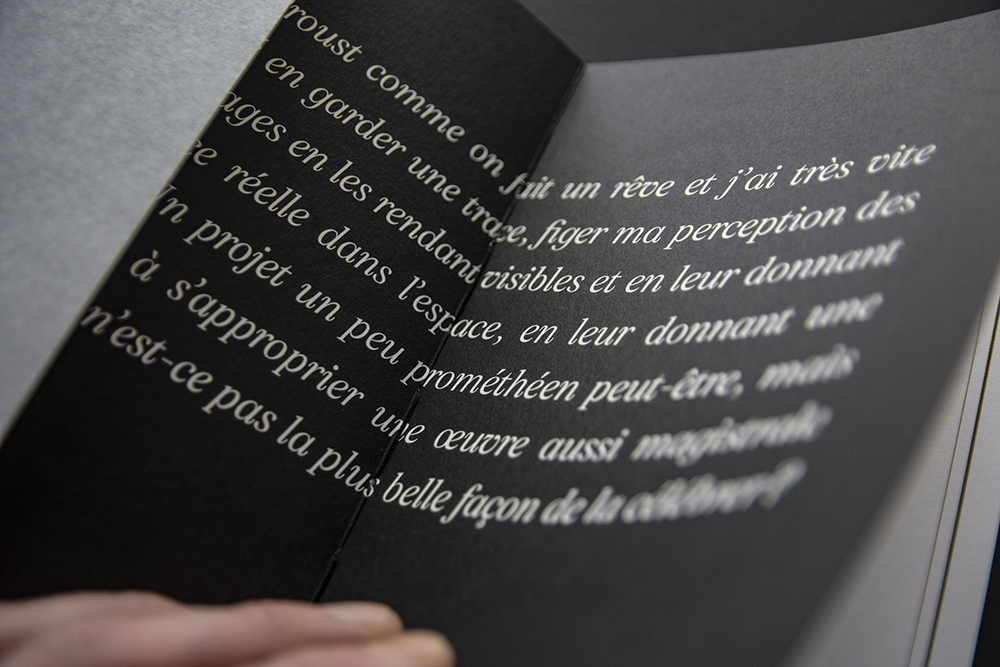 roust comme on fait un rêve et j'ai très vite
en garder une trace, figer ma perception des
ages en les rendant visibles et en leur donnant
ce réelle dans l'espace, en leur donnant une
Un projet un peu prométhéen peut-être, mais
à s'approprier une œuvre aussi magistrale
n'est-ce pas la plus belle façon de la célébrer ?